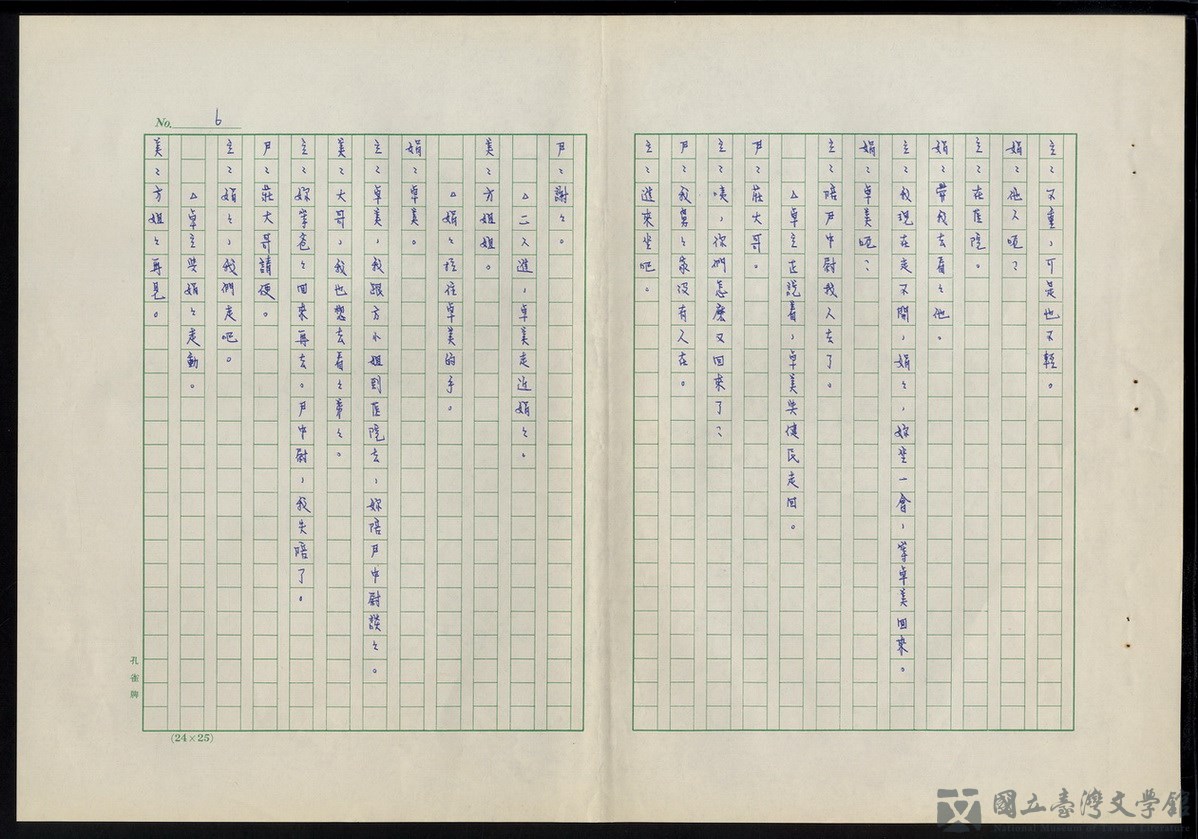 立：不重，可是也不輕。
娟：他人呢？
立：在医院。
娟：帶我去看々他。
立：我現在走不開，娟々，妳坐一會，等卓美回來。
娟：卓美呢？
立：陪尸中尉找人去了。
△卓立正說着，卓美與健民走回。
尸：莊大哥。
立：咦，你們怎麼又回來了？
尸：我舅々家沒有人在。
立：進來坐吧。
尸：謝々。
△二人進，卓美走近娟々。
美：方姐姐。
△娟々拉住卓美的手。
娟：卓美。
立：卓美，我跟方小姐到医院去，妳陪尸中尉談々。
美：大哥，我也想去看々爺々。
立：妳等爸々回來再去。尸中尉，我失陪了。
尸：莊大哥請便。
立：娟々，我們走吧。
△卓立與娟々走動。
美：方姐々再見。
No. 6
孔雀牌
(24×25)
國立臺灣文學館
National Museum of Taiwan Literature